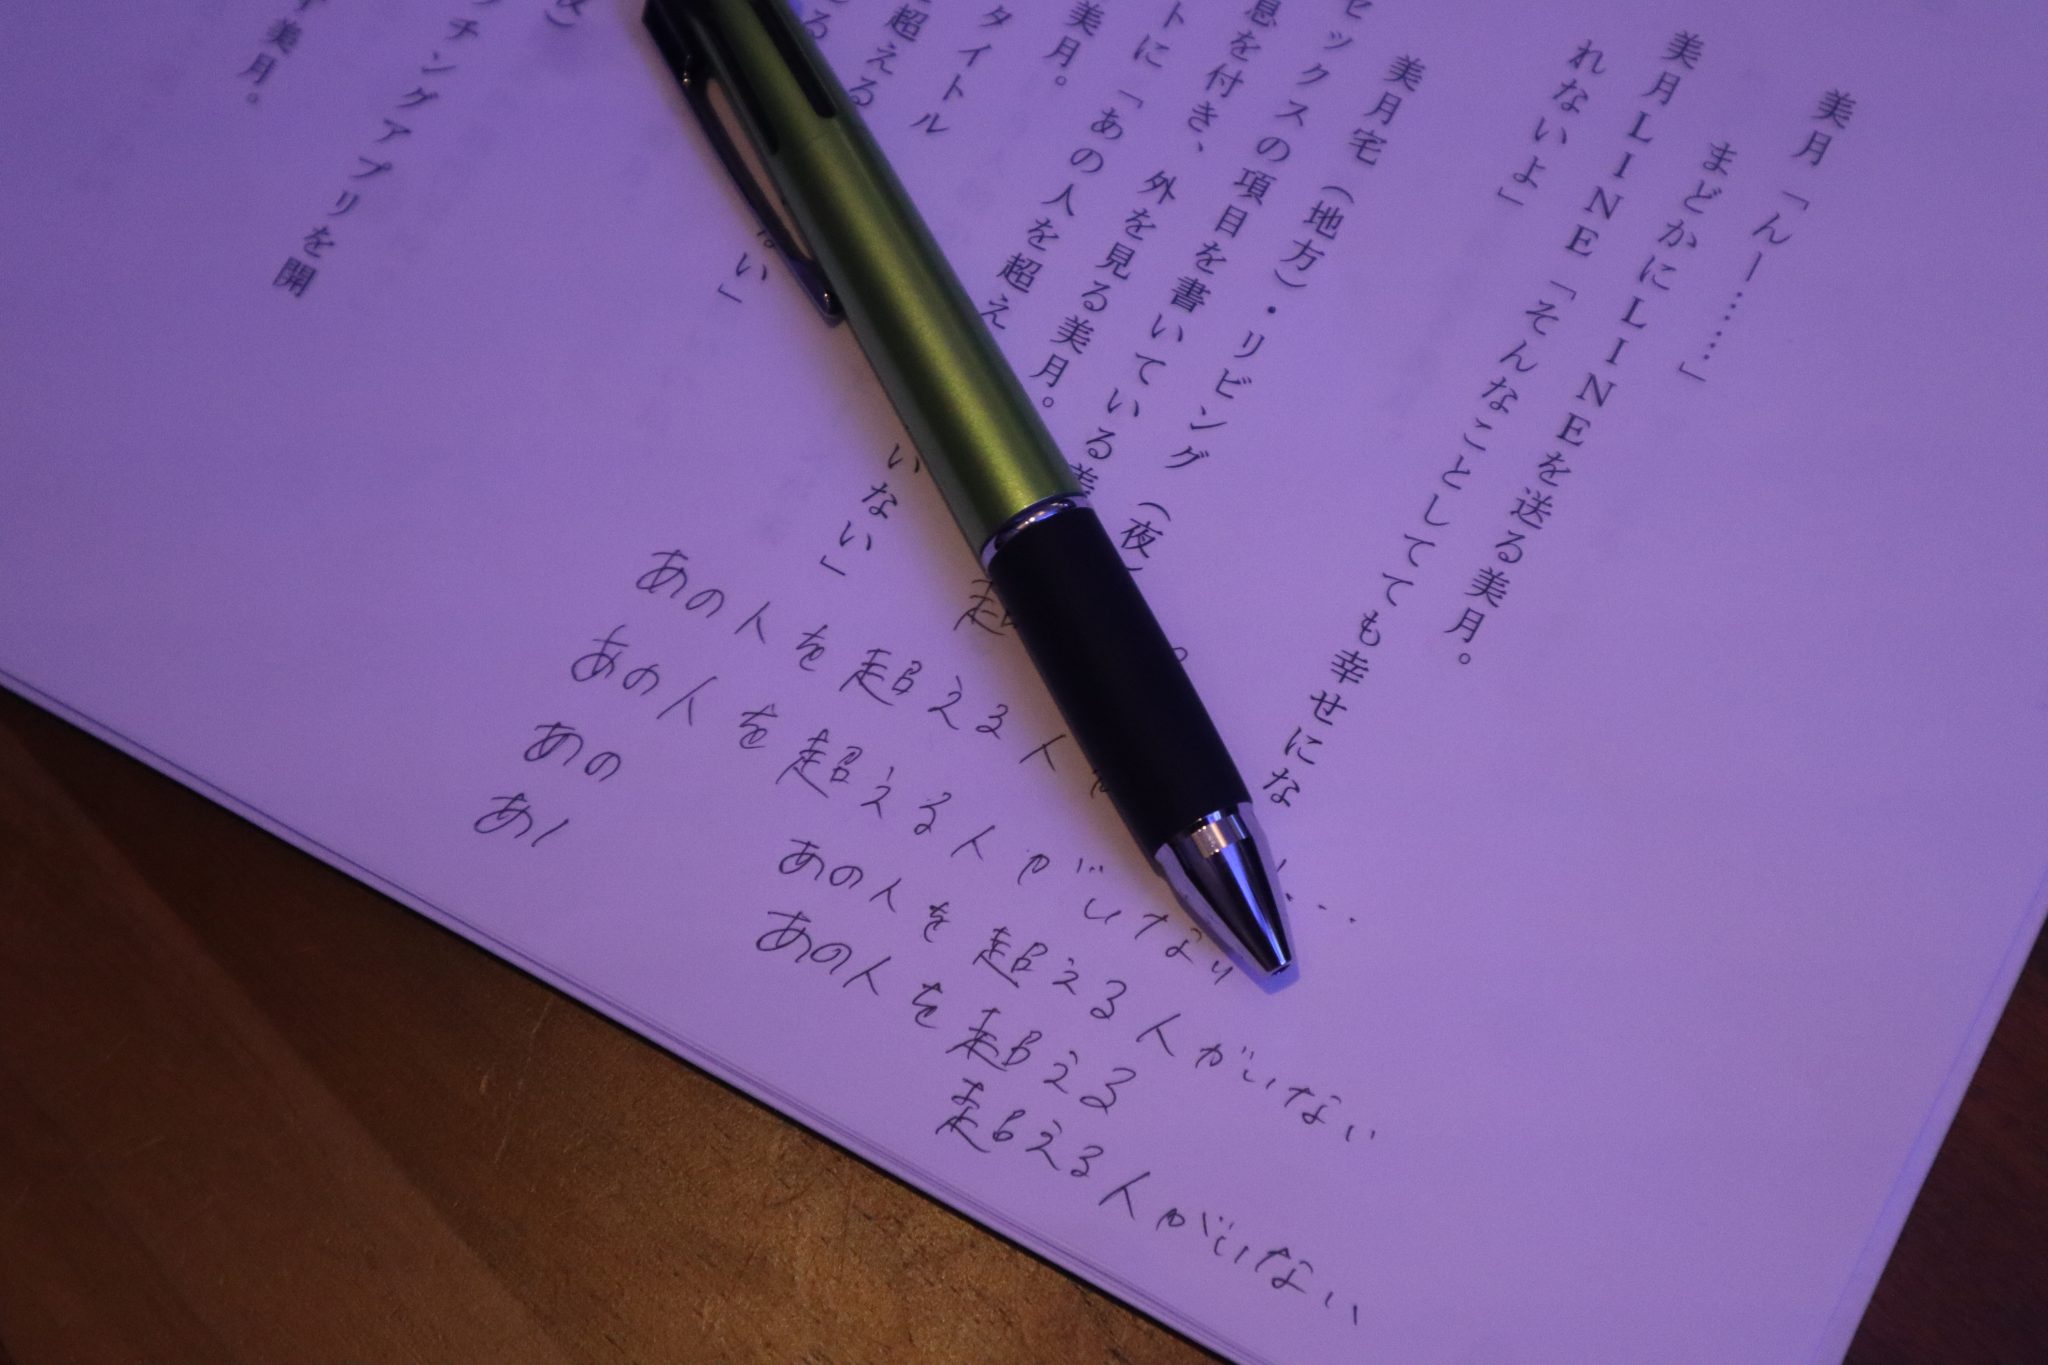 美月「んー……」
まどかにLINEを送る美月。
美月LINE「そんなことしてても幸せにな
れないよ」
美月宅（地方）・リビング（夜）
セックスの項目を書いている美
息を付き、外を見る美月。
トに「あの人を超え
美月。
タイトル
超える
いない」
い」
チングアプリを開
美月。
あの人を超える人
あの人を超える人がいない
あの
あ
あの人を超える人がいない
あの人を超える
超える人がいない